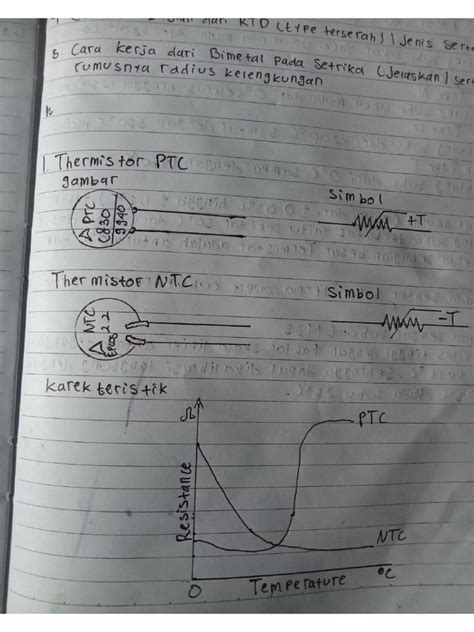 dari RTD (type terserah) | Jenis
5. Cara kerja dari Bimetal Pada Setrika (Jelaskan)
rumusnya radius kelengkungan
1. Thermistor PTC
gambar
Simbol
PTC
C830
+T
Thermistor NTC
Simbol
NTC
22
-T
Karek teristik
Ω
PTC
Resistance
NTC
0
Temperature
°C